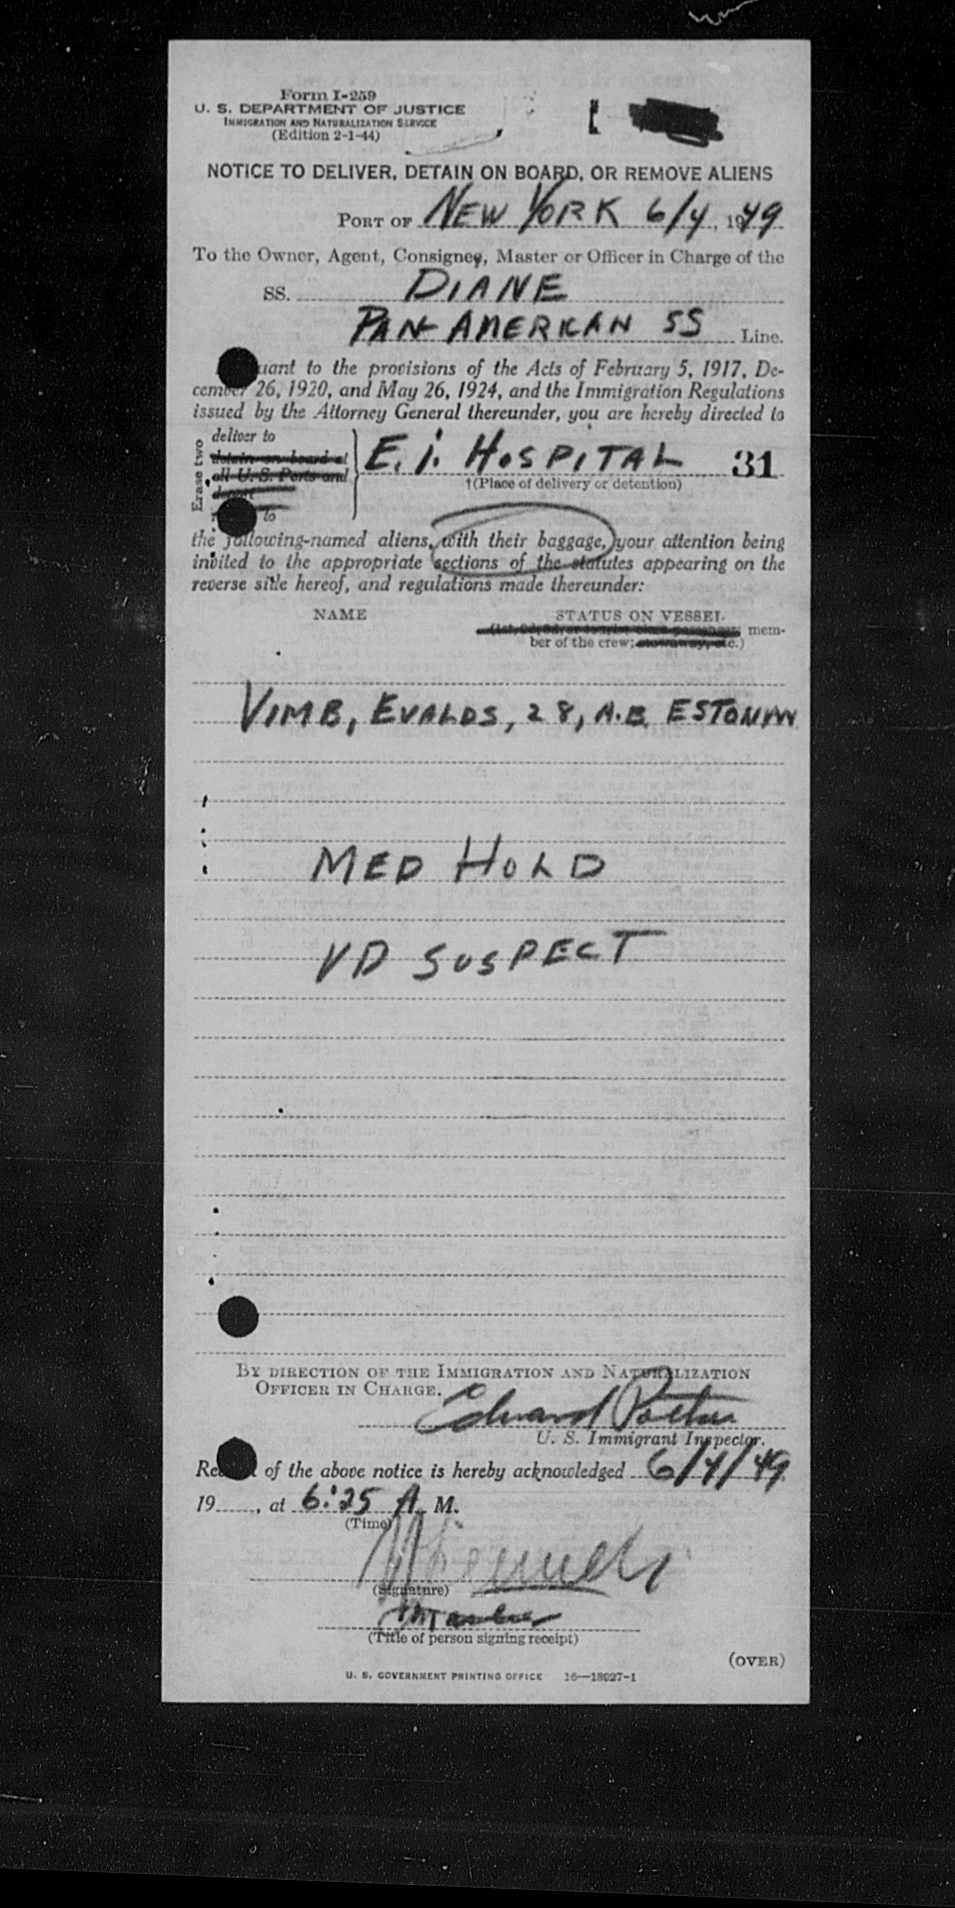 Form I-259
U. S. DEPARTMENT OF JUSTICE
IMMIGRATION AND NATURALIZATION SERVICE
(Edition 2-1-44)
NOTICE TO DELIVER, DETAIN ON BOARD, OR REMOVE ALIENS
PORT OF NEW YORK 6/4, 1949
To the Owner, Agent, Consignee, Master or Officer in Charge of the
SS. DIANE
PAN-AMERICAN SS Line.
uant to the provisions of the Acts of February 5, 1917, De-
cember 26, 1920, and May 26, 1924, and the Immigration Regulations
issued by the Attorney General thereunder, you are hereby directed to
Erase two
deliver to
detain on board at
all U. S. Ports and
deport
to
E. I. HOSPITAL 31
†(Place of delivery or detention)
the following-named aliens, with their baggage, your attention being
invited to the appropriate sections of the statutes appearing on the
reverse side hereof, and regulations made thereunder:
NAME STATUS ON VESSEL
(1st, 2d, 3d, or tourist class passenger; mem-
ber of the crew; stowaway, etc.)
VIMB, EVALDS, 28, A.B. ESTONIAN
MED HOLD
VD SUSPECT
BY DIRECTION OF THE IMMIGRATION AND NATURALIZATION
OFFICER IN CHARGE.
Edward
U. S. Immigrant Inspector.
Re t of the above notice is hereby acknowledged 6/4/49
19 , at 6:25 A. M.
(Time)
(Signature)
Master
(Title of person signing receipt)
(OVER)
U. S. GOVERNMENT PRINTING OFFICE 16—18027-1